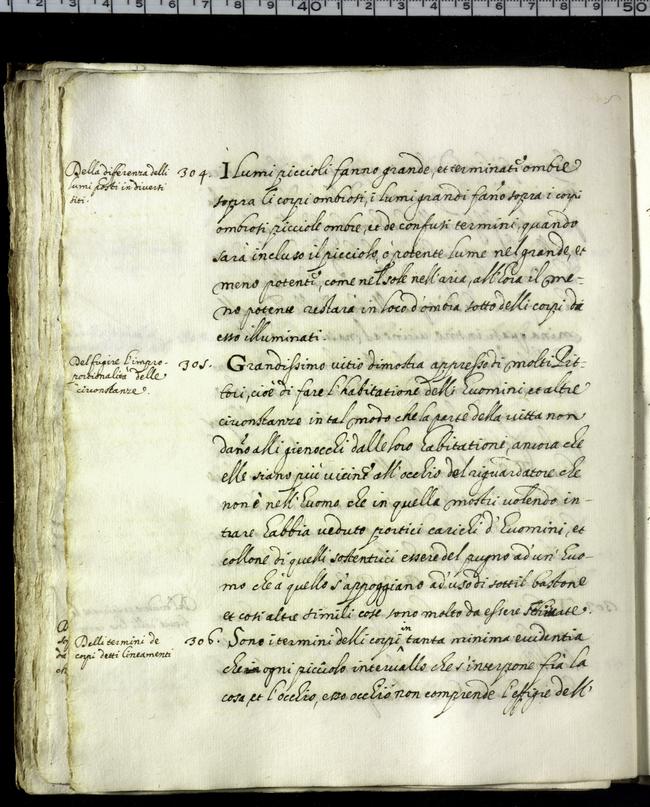 Della differenza delli
lumi posti in diversi
siti.
304. I lumi piccioli fanno grande, et terminate ombre
sopra li corpi ombrosi, i lumi grandi fano sopra i corpi
ombrosi picciole ombre, et de confusi termini, quando
sarà incluso il picciolo, o potente lume nel grande, et
meno potente, come nel sole nell'aria, all'hora il me-
no potente restarà in loco d'ombra sotto delli corpi da
esso illuminati
Del fugire l'impro-
portionalita delle
circonstanze.
305. Grandissimo vitio dimostra appresso di molti Pit-
tori, cioè di fare l'habitatione delli huomini, et altre
circonstanze in tal modo che la parte della vitta non
dano alli ginocchi dalle loro habitationi, ancora che
elle siano più vicine all'occhio del riguardatore che
non è nell'huomo che in quella mostri volendo in-
trare habbia veduto portici carichi d'huomini, et
collone di quelli sostentrici essere del pugno ad un' huo-
mo che à quello s'appoggiano ad'uso di sottil bastone
et cosi altre simili cose sono molto da essere schivate.
Delli termini de
corpi detti lineamenti
306. Sono i termini delli corpi in tanta minima evidentia
che in ogni picciolo intervallo che s'interpone frà la
cosa, et l'occhio, esso occhio non comprende l'effigie dell'